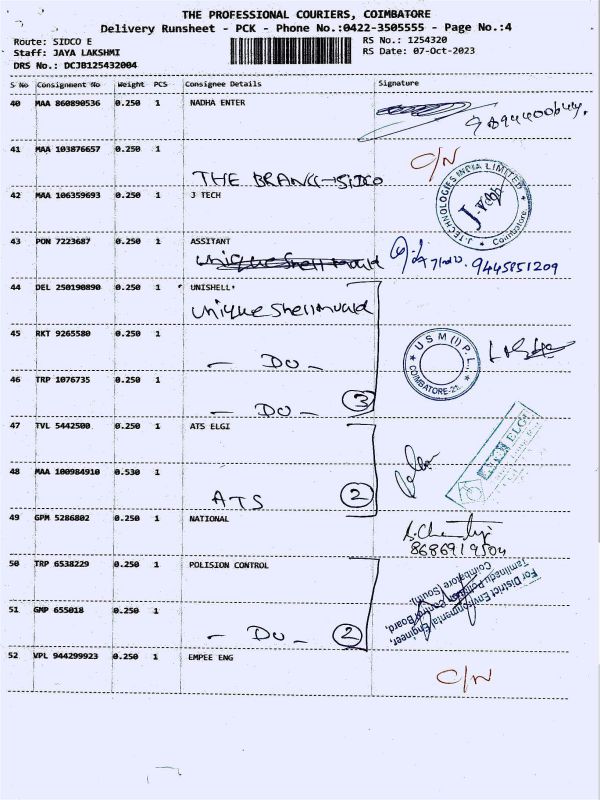 THE PROFESSIONAL COURIERS, COIMBATORE
Delivery Runsheet - PCK - Phone No.:0422-3505555 - Page No.:4
Route: SIDCO E RS No.: 1254320
Staff: JAYA LAKSHMI RS Date: 07-Oct-2023
DRS No.: DCJB125432004
S No Consignment No Weight PCS Consignee Details Signature
40 MAA 860890536 0.250 1 NADHA ENTER
41 MAA 103876657 0.250 1 C/N
THE BRANCH-SIDCO
42 MAA 106359693 0.250 1 J TECH
J.TECHNOLOGIES INDIA LIMITED
Coimbatore
43 PON 7223687 0.250 1 ASSITANT
9445851209
44 DEL 250190890 0.250 1 UNISHELL
Unique Shellmould
45 RKT 9265580 0.250 1
- DO -
U S M (I) P.L.
COIMBATORE-21
46 TRP 1076735 0.250 1
- DO - 3
47 TVL 5442500 0.250 1 ATS ELGI
ELGI
48 MAA 100984910 0.530 1
ATS 2
49 GPM 5286802 0.250 1 NATIONAL
8686919504
50 TRP 6538229 0.250 1 POLISION CONTROL
For District Environmental Engineer,
Tamilnadu Pollution Control Board,
Coimbatore (South)
51 GMP 655018 0.250 1
- DO - 2
52 VPL 944299923 0.250 1 EMPEE ENG
C/N